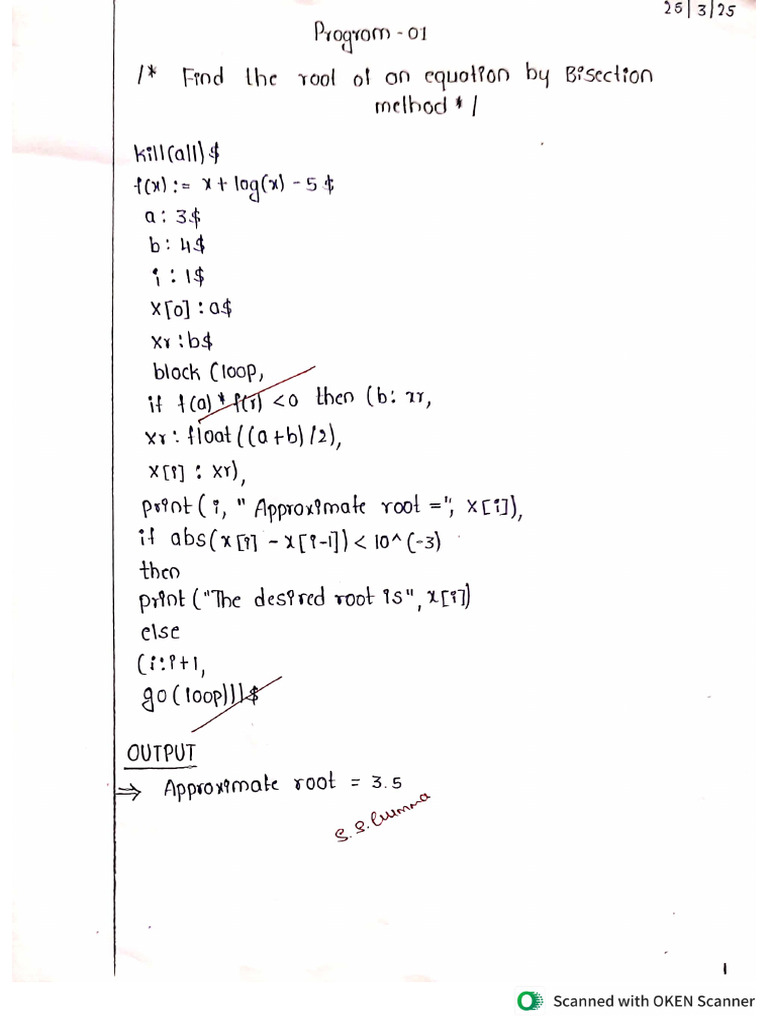 25|3|25
Program - 01
/* Find the root of an equation by Bisection
method * /
kill(all)$
f(x) := x + log(x) - 5 $
a : 3$
b : 4$
i : 1$
x[0] : a$
xr : b$
block (loop,
if f(a) * f(r) <0 then (b: xr,
xr : float((a+b)/2),
x[i] : xr),
print(i, " Approximate root =", x[i]),
if abs(x[i] - x[i-1]) < 10^(-3)
then
print ("The desired root is", x[i])
else
(i:i+1,
go(loop)))$
OUTPUT
⇒ Approximate root = 3.5
1
Scanned with OKEN Scanner